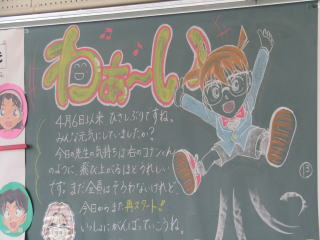 わぁ～い♪
4月6日以来 ひさしぶりですね。
みんな元気にしていましたか?
今日の先生の気持ちは右のコナンくん
のように、飛び上がるほどうれしい
です。まだ全員はそろわないけれど、
今日からまた再スタート!!
いっしょにがんばっていこうね。
⑬